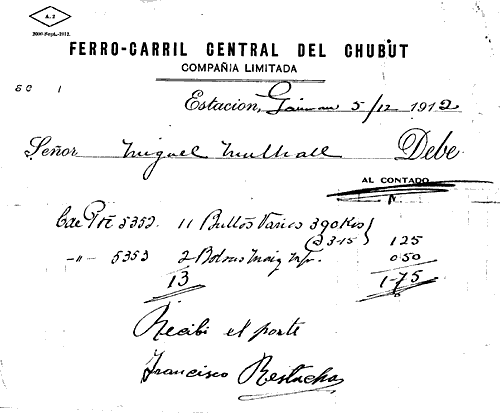 A. 2
2000-Sept.-1912.
FERRO-CARRIL CENTRAL DEL CHUBUT
COMPAÑIA LIMITADA
Estacion, Gaiman 5/12 1912
Señor Miguel Mulhall Debe
AL CONTADO
5352. 11 Bultos Varios 390 Kos
@ 3.15 125
-"- 5353 2 Bolsas Maiz 050
13 1.75
Recibi el porte
Francisco